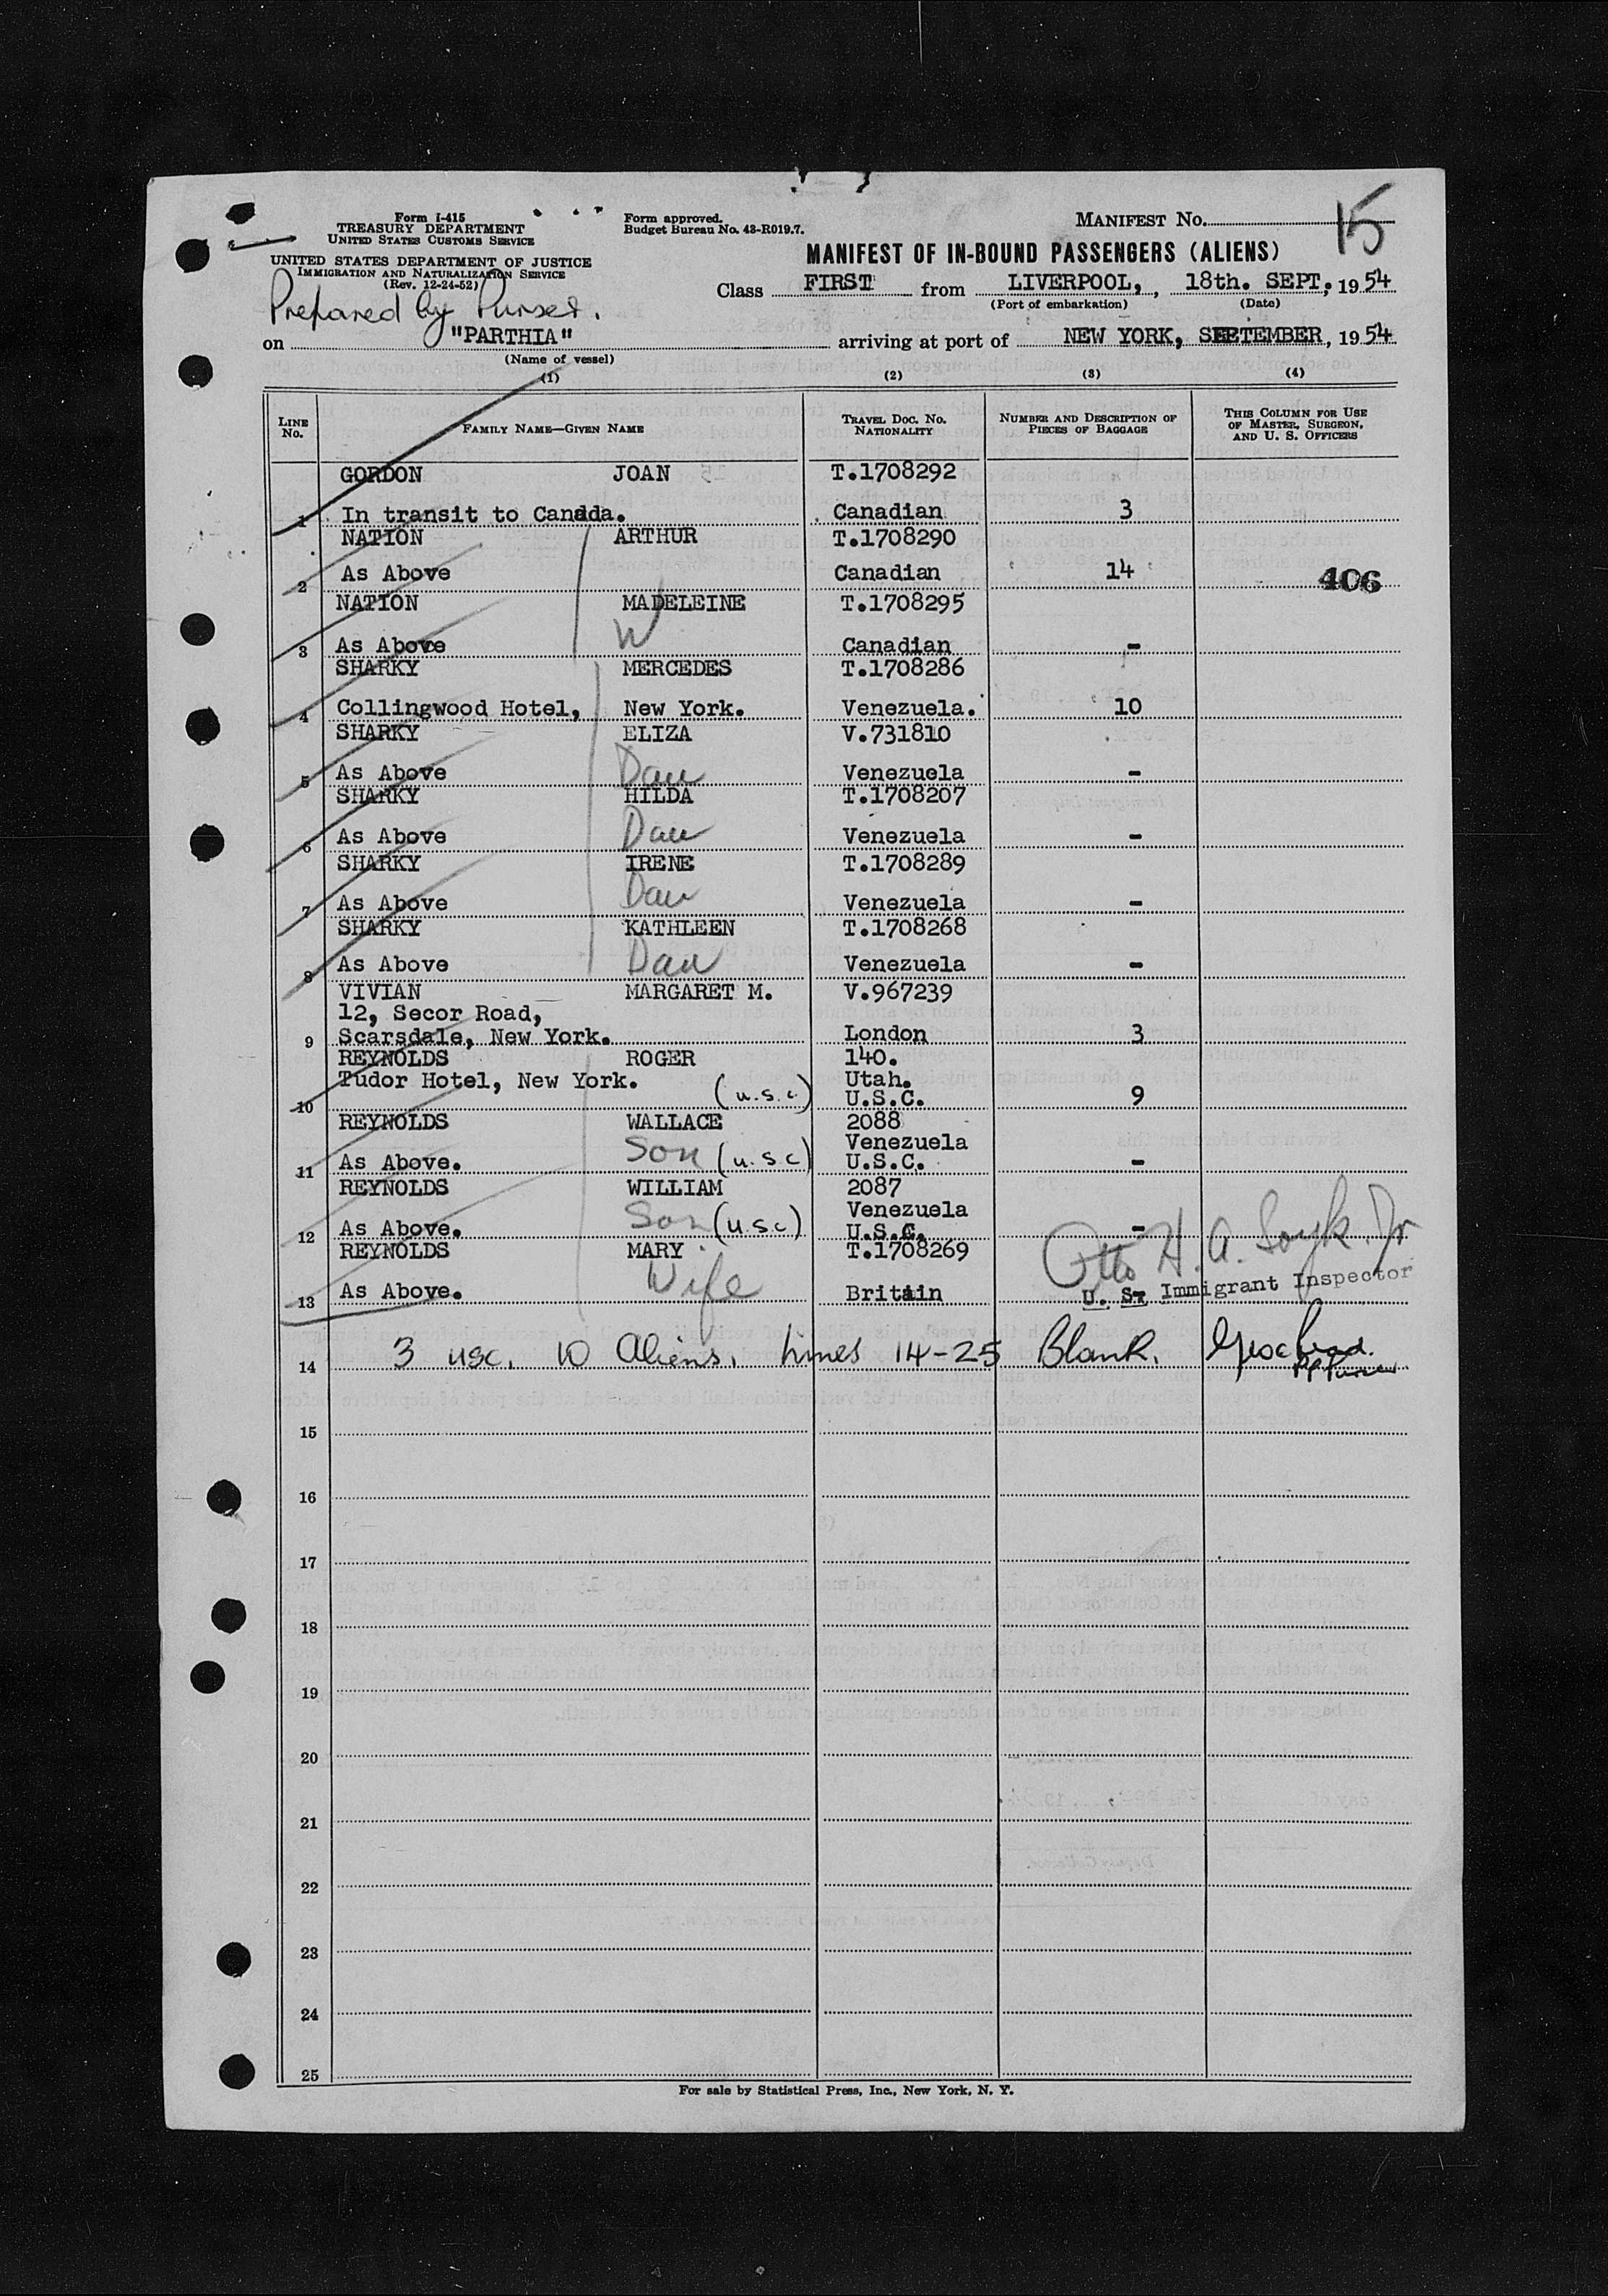 Form I-415
TREASURY DEPARTMENT
UNITED STATES CUSTOMS SERVICE
UNITED STATES DEPARTMENT OF JUSTICE
IMMIGRATION AND NATURALIZATION SERVICE
(Rev. 12-24-52)
Form approved.
Budget Bureau No. 43-R019.7.
MANIFEST No. 15
MANIFEST OF IN-BOUND PASSENGERS (ALIENS)
Prepared by Purser.
Class FIRST from LIVERPOOL, , 18th. SEPT, 1954
(Port of embarkation) (Date)
on "PARTHIA" arriving at port of NEW YORK, SEPTEMBER, 1954
(Name of vessel)
(1) (2) (3) (4)
LINE No. FAMILY NAME—GIVEN NAME TRAVEL DOC. No. NATIONALITY NUMBER AND DESCRIPTION OF PIECES OF BAGGAGE THIS COLUMN FOR USE OF MASTER, SURGEON, AND U. S. OFFICERS
GORDON JOAN T.1708292
1 In transit to Canada. Canadian 3
NATION ARTHUR T.1708290
2 As Above Canadian 14 406
NATION MADELEINE T.1708295
W
3 As Above Canadian -
SHARKY MERCEDES T.1708286
4 Collingwood Hotel, New York. Venezuela. 10
SHARKY ELIZA V.731810
5 As Above Dau Venezuela -
SHARKY HILDA T.1708207
6 As Above Dau Venezuela -
SHARKY IRENE T.1708289
7 As Above Dau Venezuela -
SHARKY KATHLEEN T.1708268
8 As Above Dau Venezuela -
VIVIAN MARGARET M. V.967239
12, Secor Road,
9 Scarsdale, New York. London 3
REYNOLDS ROGER 140.
Tudor Hotel, New York. Utah.
10 (u.s.c) U.S.C. 9
REYNOLDS WALLACE 2088
Venezuela
11 As Above. Son (u.s.c) U.S.C. -
REYNOLDS WILLIAM 2087
Venezuela
12 As Above. Son (u.s.c) U.S.C. -
REYNOLDS MARY T.1708269
13 As Above. Wife Britain -
Otto H. A. Soyk. Jr
U. S. Immigrant Inspector
14 3 usc. 10 Aliens. Lines 14-25 Blank.
15
16
17
18
19
20
21
22
23
24
25
For sale by Statistical Press, Inc., New York, N. Y.